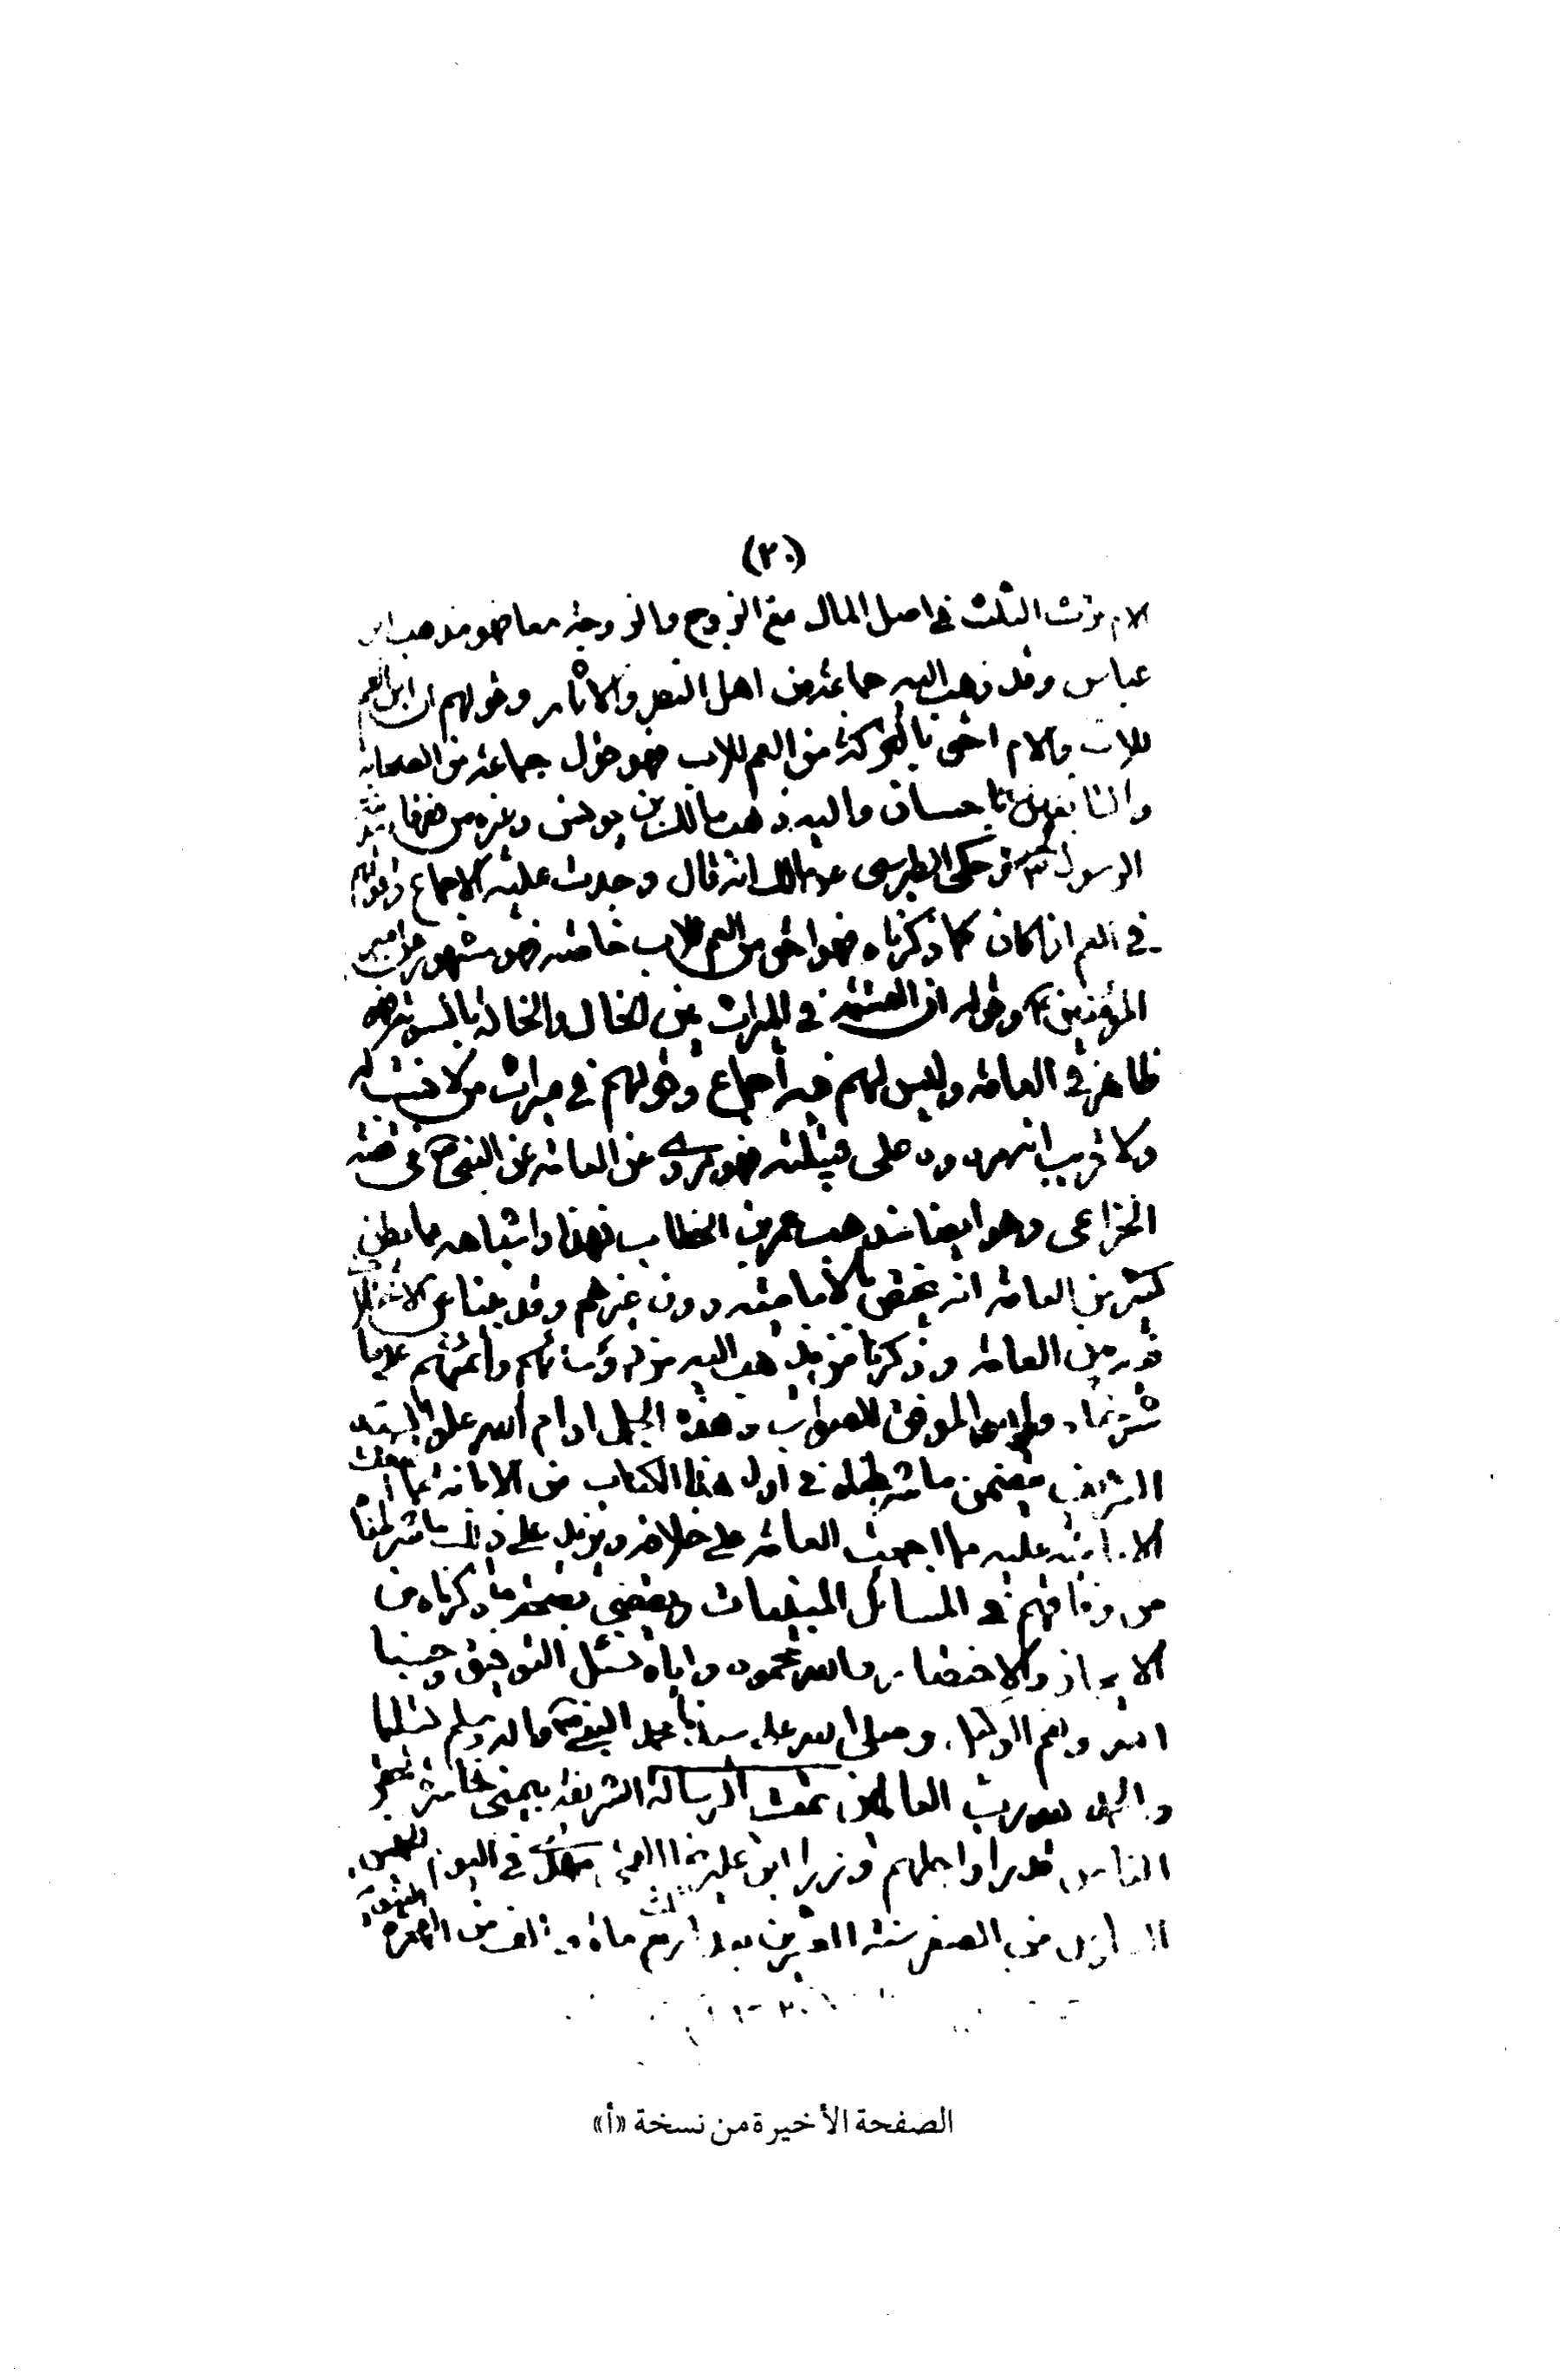 (٢٠)
الام ترث الثلث في اصل المال مع الزوج والزوجة معا فهو مذهب ابن
عباس وقد ذهب اليه جماعة من اهل النظر والاثار وقولهم ان ابن العم
للاب والام احق بالتركة من العم للاب فهو قول جماعة من الصحابة
والتابعين باحسان واليه ذهب مالك بن وغيره من فقهاء مدينة
الرسول وحكى الطبرى عن مالك انه قال وجدت عليه الاجماع وقولهم
في العم اذا كان كما ذكرناه فهو احق من العم للاب خاصة فهو مشهور عن امير
المؤمنين ع وقوله ان القسمة في الميراث بين الخال والخالة بالسوية فهو
ظاهر في العامة وليس لهم فيه اجماع وقولهم في ميراث من لا نسب له
ولا قريب انه على قبيلته فهو مروى عن العامة عن النبي ص في قصة
الخزاعى وهو ايضا مذهب عمر بن الخطاب فهذا واشباهه مما يظن
كثير من العامة انه يختص بالامامية دون غيرهم وقد بينا عن الاختلاف
فيه من العامة وذكرنا من يذهب اليه من رؤسائهم وائمتهم على ما
شرحناه والله الموفق للصواب وهذه الجمل ادام الله علو السيد
الشريف يتضمن ما شرطناه في اول هذا الكتاب من الابانة عما اتفقت
الامامية عليه مما اجمعت العامة على خلافه ويزيد على ذلك ما شرطنا
من وفاقهم في المسائل ما ذكرناه من
الايجاز والاختصار والله محمود واياه نسئل التوفيق وحسبنا
الله ونعم الوكيل وصلى الله على سيدنا محمد النبي واله وسلم تسليما
والحمد لله رب العالمين تمت الرسالة الشريفة بيمنى احقر
الناس قدرا واجلهم وزرا ابن في اليوم الخميس
من الصفر سنة بعد مأة والف من الهجرة
الصفحة الأخيرة من نسخة «أ»